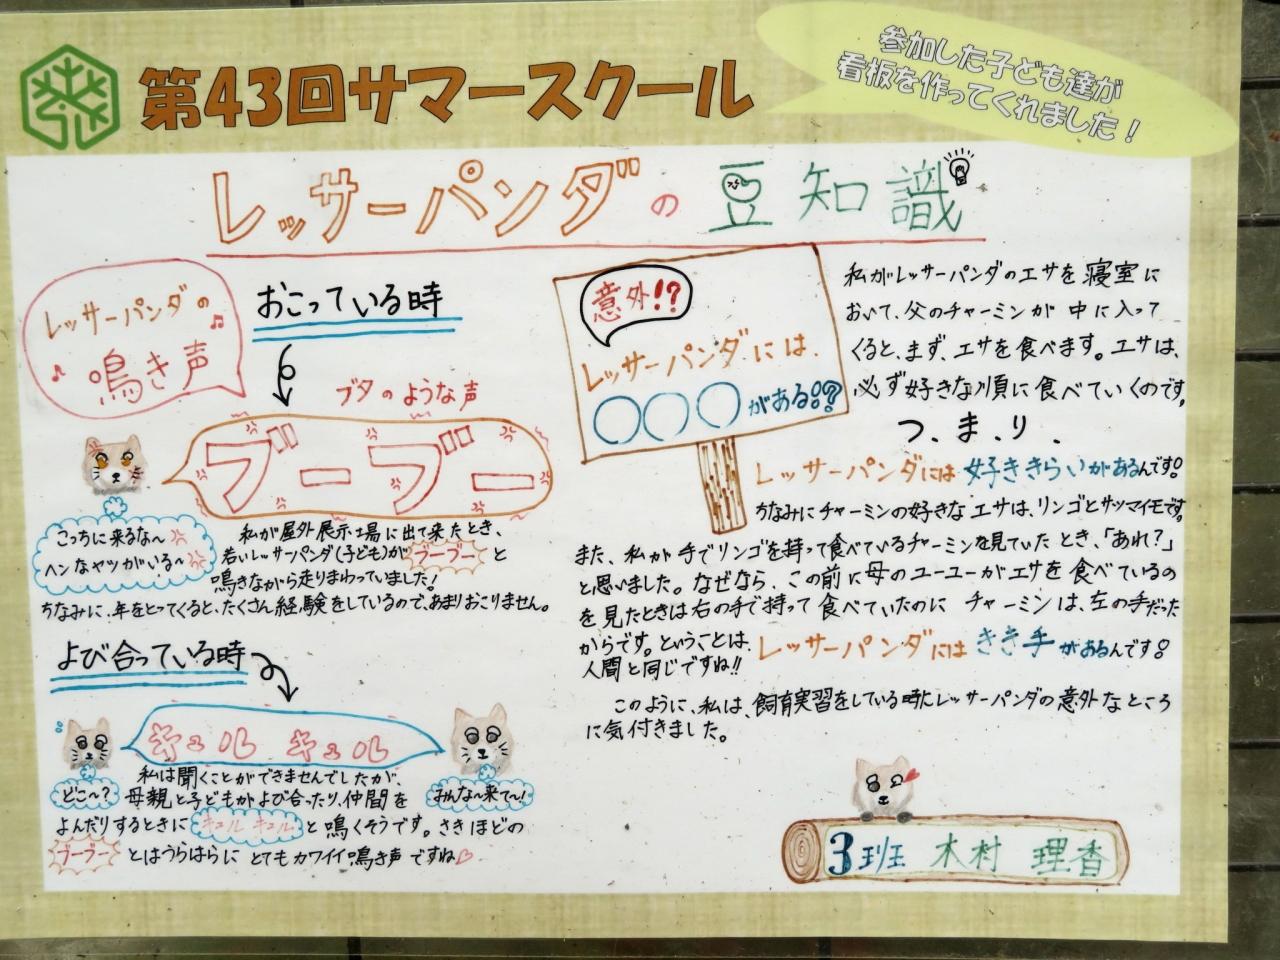 第43回サマースクール
参加した子ども達が
看板を作ってくれました！
レッサーパンダの豆知識
レッサーパンダの
鳴き声
おこっている時
ブタのような声
ブーブー
こっちに来るな〜
ヘンなヤツがいる〜
私が屋外展示場に出て来たとき、
若いレッサーパンダ(子ども)がブーブーと
鳴きながら走りまわっていました！
ちなみに、年をとってくると、たくさん経験をしているので、あまりおこりません。
よび合っている時
キュル キュル
どこ〜？
みんな〜来て〜！
私は聞くことができませんでしたが、
母親と子どもがよび合ったり、仲間を
よんだりするときにキュルキュルと鳴くそうです。さきほどの
ブーブーとはうらはらにとてもカワイイ鳴き声ですね♡
意外!?
レッサーパンダには、
○○○がある!?
私がレッサーパンダのエサを寝室に
おいて、父のチャーミンが中に入って
くると、まず、エサを食べます。エサは、
必ず好きな順に食べていくのです。
つ、ま、り、
レッサーパンダには好ききらいがあるんです!
ちなみにチャーミンの好きなエサは、リンゴとサツマイモです。
また、私が手でリンゴを持って食べているチャーミンを見ていたとき、「あれ？」
と思いました。なぜなら、この前に母のユーユーがエサを食べているの
を見たときは右の手で持って食べていたのにチャーミンは、左の手だった
からです。ということは、レッサーパンダにはきき手があるんです!
人間と同じですね!!
このように、私は、飼育実習をしている時にレッサーパンダの意外なところ
に気付きました。
3班 木村 理香